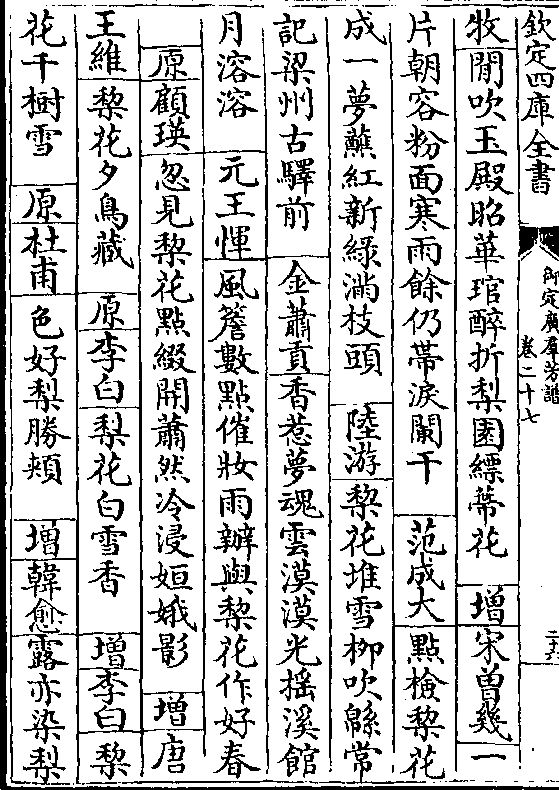 欽定四庫全書
御定廣羣芳譜
卷二十七
二六
牧閒吹玉殿昭華琯醉折梨園縹蒂花 增宋曽幾一
片朝容粉面寒雨餘仍帶淚闌干 范成大點檢棃花
成一夢蘸紅新緑滿枝頭 陸游棃花堆雪栁吹緜常
記梁州古驛前 金蕭貢香惹夢魂雲漠漠光揺溪館
月溶溶 元王惲風簷數點催妝雨辦與棃花作好春
原顧瑛忽見棃花點綴開蕭然冷浸姮娥影 增唐
王維棃花夕鳥藏 原李白棃花白雪香 增李白棃
花千樹雪 原杜甫色好梨勝頰 增韓愈露亦染梨